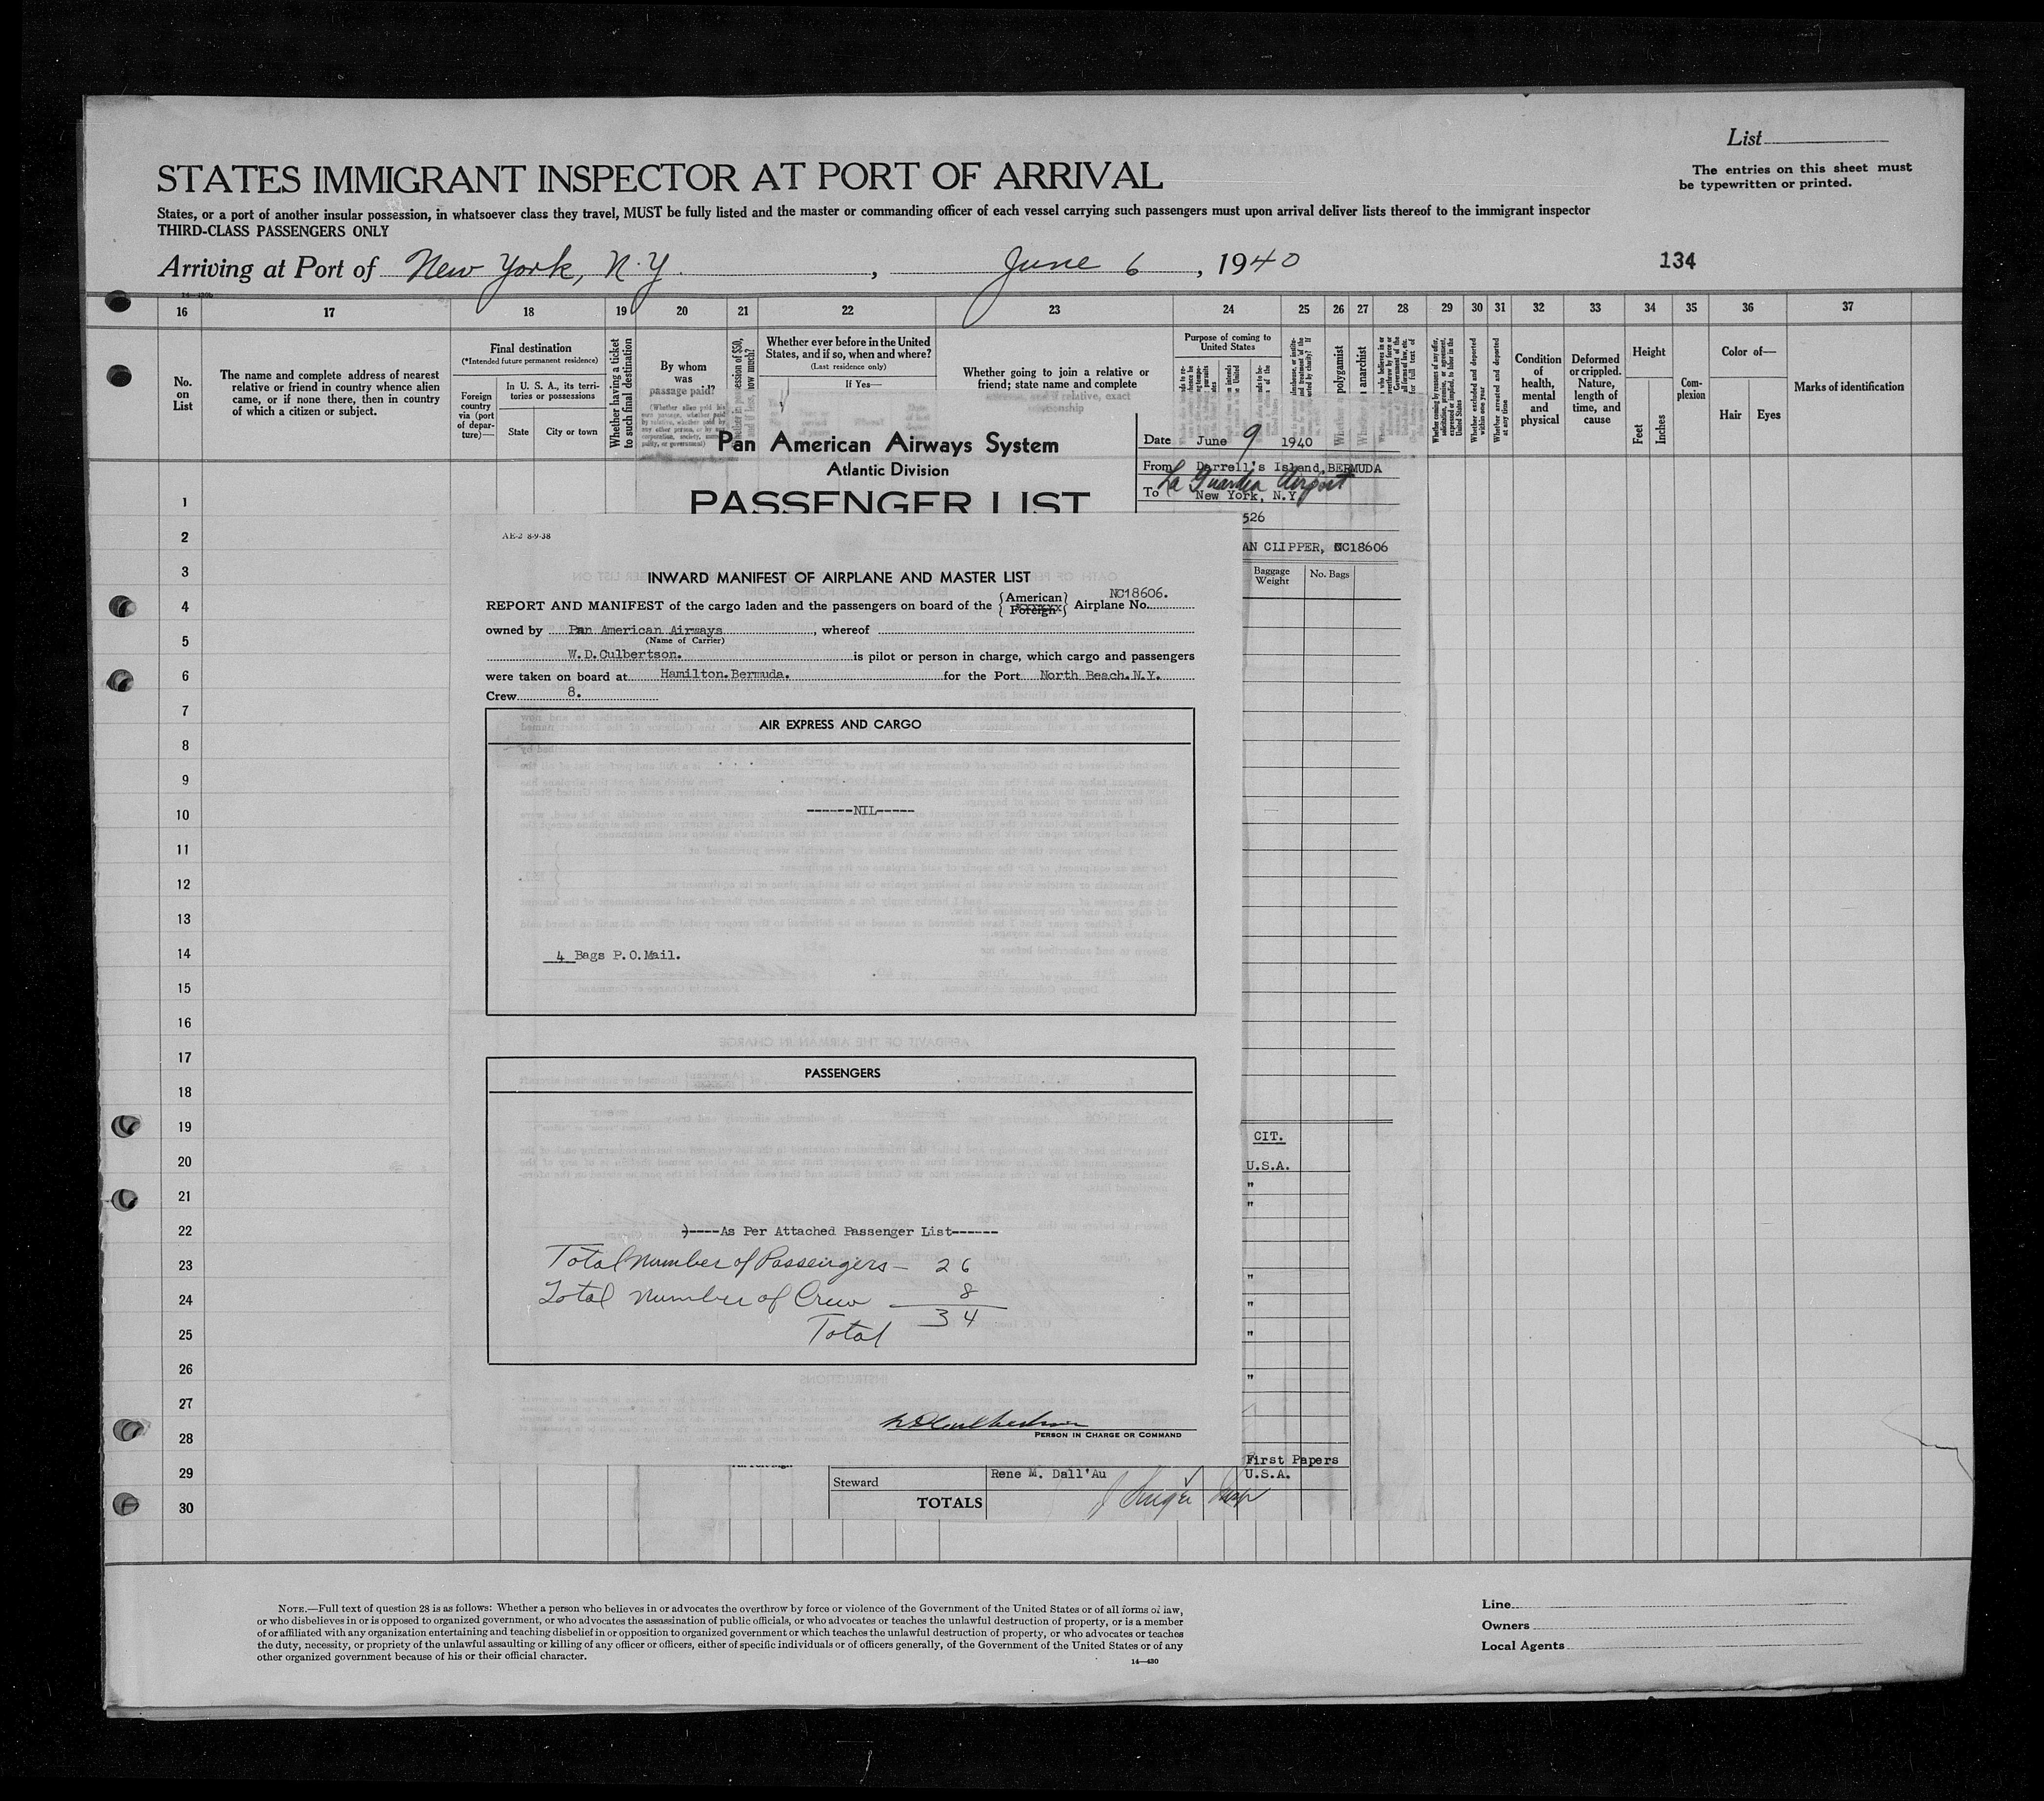 List
The entries on this sheet must
be typewritten or printed.
STATES IMMIGRANT INSPECTOR AT PORT OF ARRIVAL
States, or a port of another insular possession, in whatsoever class they travel, MUST be fully listed and the master or commanding officer of each vessel carrying such passengers must upon arrival deliver lists thereof to the immigrant inspector
THIRD-CLASS PASSENGERS ONLY
Arriving at Port of New York, N.Y. , June 6 , 1940
134
16 17 18 19 20 21 22 23 24 25 26 27 28 29 30 31 32 33 34 35 36 37
No.
on
List
The name and complete address of nearest
relative or friend in country whence alien
came, or if none there, then in country
of which a citizen or subject.
Final destination
(*Intended future permanent residence)
Foreign
country
via (port
of depar-
ture)—
In U. S. A., its terri-
tories or possessions
State
City or town
Whether having a ticket
to such final destination
By whom
was
passage paid?
Whether ever before in the United
States, and if so, when and where?
(Last residence only)
If Yes—
Whether going to join a relative or
friend; state name and complete
Purpose of coming to
United States
polygamist
anarchist
Whether ever excluded and deported
within one year
Whether arrested and deported
at any time
Condition
of
health,
mental
and
physical
Deformed
or crippled.
Nature,
length of
time, and
cause
Height
Feet
Inches
Com-
plexion
Color of—
Hair
Eyes
Marks of identification
Pan American Airways System
Atlantic Division
PASSENGER LIST
Date June 9 1940
From Darrell's Island, BERMUDA
La Guardia Airport
To New York, N.Y.
526
AN CLIPPER, NC18606
Baggage
Weight
No. Bags
AE-2 8-9-38
INWARD MANIFEST OF AIRPLANE AND MASTER LIST
REPORT AND MANIFEST of the cargo laden and the passengers on board of the {American} {Foreign} Airplane No. NC18606.
owned by Pan American Airways , whereof
(Name of Carrier)
W.D.Culbertson. is pilot or person in charge, which cargo and passengers
were taken on board at Hamilton.Bermuda. for the Port North Beach.N.Y.
Crew 8.
AIR EXPRESS AND CARGO
------NIL-----
4 Bags P.O.Mail.
PASSENGERS
)----As Per Attached Passenger List------
Total Number of Passengers — 26
Total Number of Crew 8
Total 34
WDCulbertson
PERSON IN CHARGE OR COMMAND
CIT.
U.S.A.
"
"
"
"
"
"
First Papers
Steward Rene M. Dall'Au U.S.A.
TOTALS
1
2
3
4
5
6
7
8
9
10
11
12
13
14
15
16
17
18
19
20
21
22
23
24
25
26
27
28
29
30
NOTE.—Full text of question 28 is as follows: Whether a person who believes in or advocates the overthrow by force or violence of the Government of the United States or of all forms of law,
or who disbelieves in or is opposed to organized government, or who advocates the assassination of public officials, or who advocates or teaches the unlawful destruction of property, or is a member
of or affiliated with any organization entertaining and teaching disbelief in or opposition to organized government or which teaches the unlawful destruction of property, or who advocates or teaches
the duty, necessity, or propriety of the unlawful assaulting or killing of any officer or officers, either of specific individuals or of officers generally, of the Government of the United States or of any
other organized government because of his or their official character.
14—430
Line
Owners
Local Agents